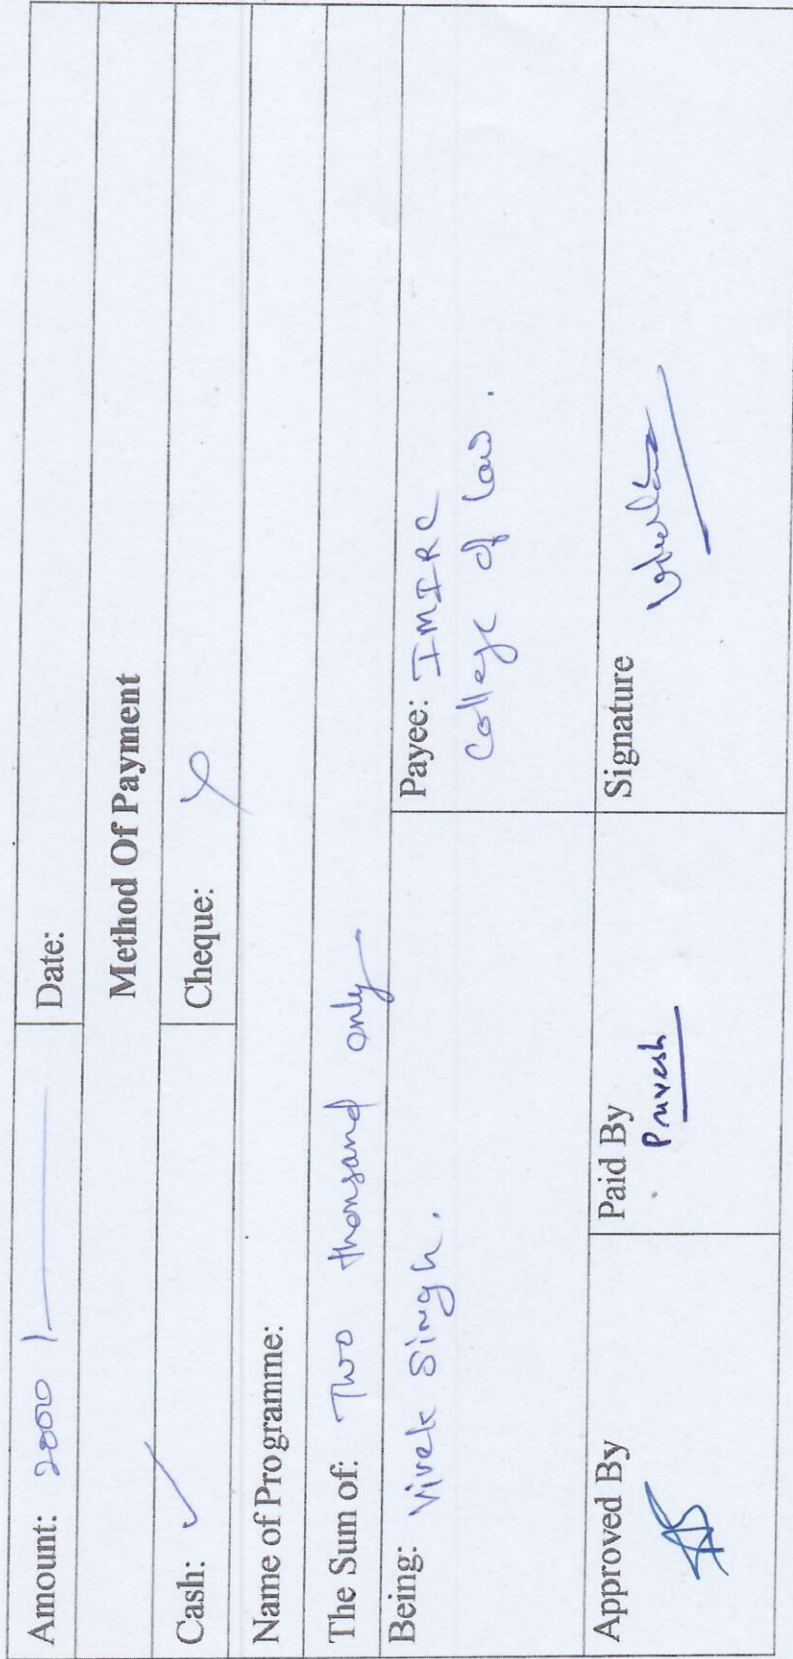 Amount: 2000/— Date:
Method Of Payment
Cash: ✓ Cheque:
Name of Programme:
The Sum of: Two thousand only
Being: Vivek Singh. Payee: IMIRC
College of Law.
Approved By Paid By Signature
Pravesh